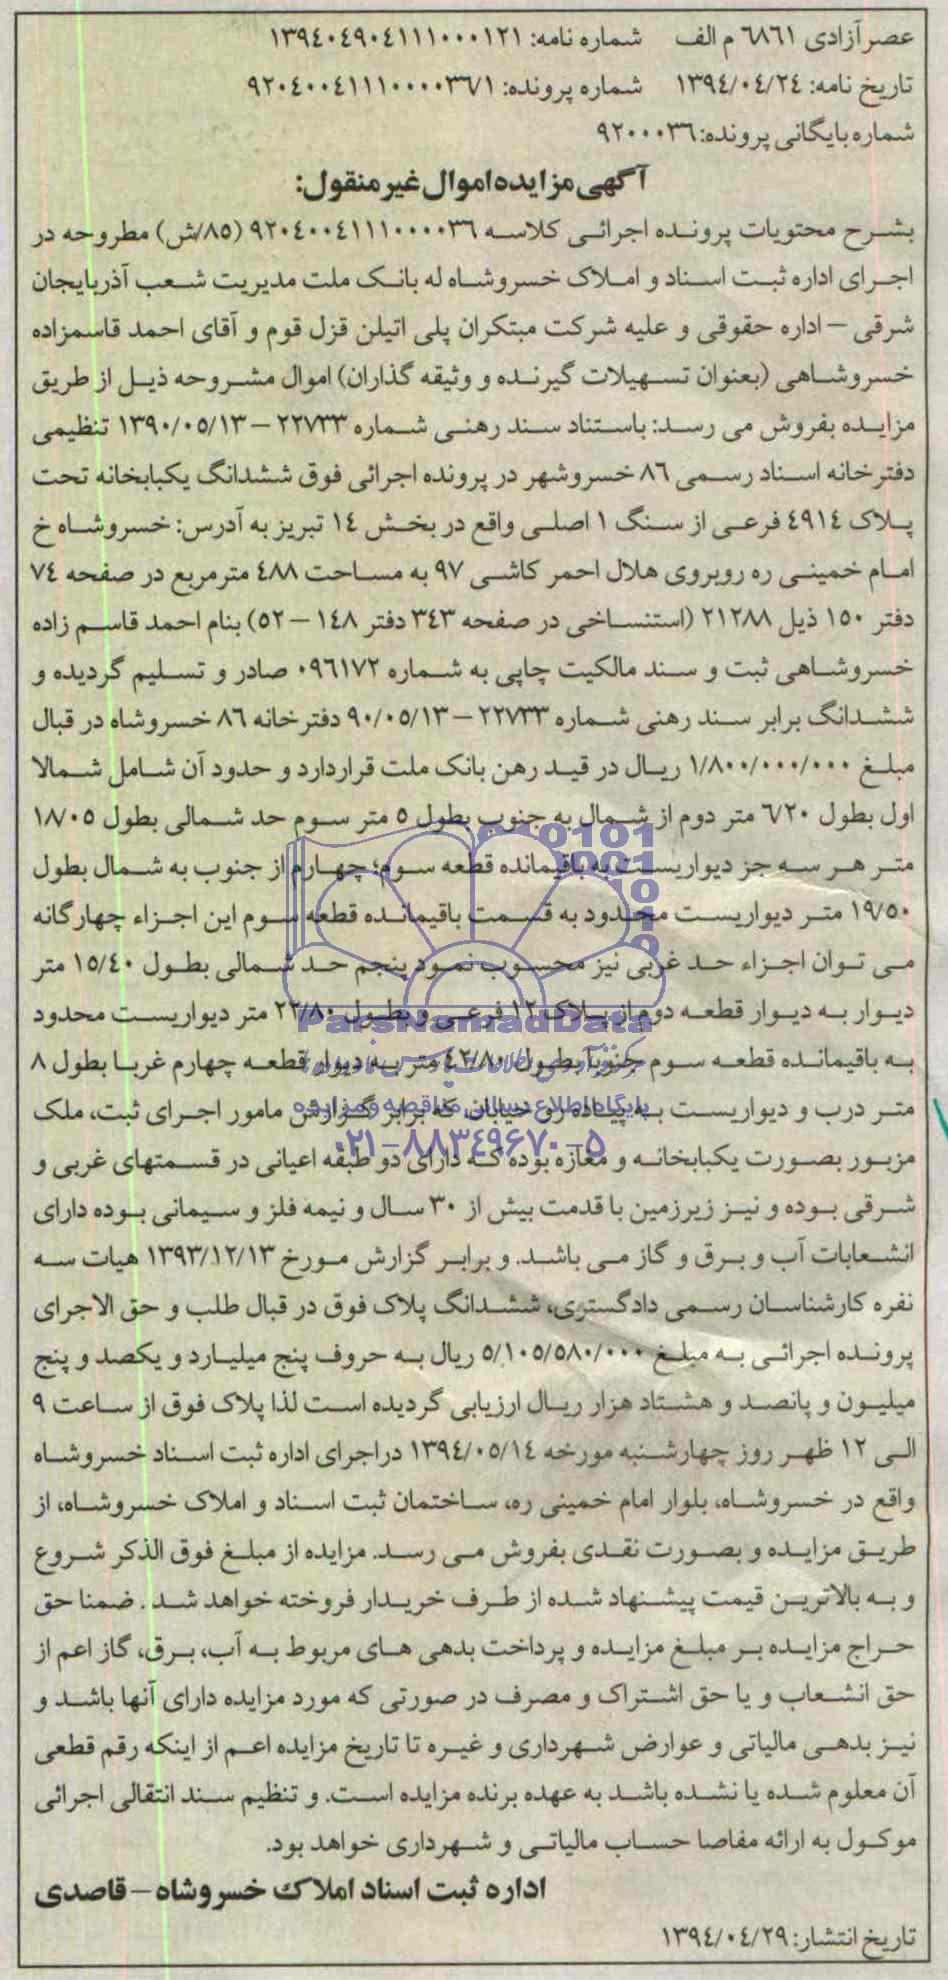 عصر آزادی ٦٨٦١ م الف شماره نامه: ١٣٩٤٠٤٩٠٤١١١٠٠٠١٢١
تاریخ نامه: ١٣٩٤/٠٤/٢٤ شماره پرونده: ٩٢٠٤٠٠٤١١١٠٠٠٠٣٦/١
شماره بایگانی پرونده: ٩٢٠٠٠٣٦
آگهی مزایده اموال غیر منقول:
بشرح محتویات پرونده اجرائی کلاسه ٩٢٠٤٠٠٤١١١٠٠٠٠٣٦ (٨٥/ش) مطروحه در
اجرای اداره ثبت اسناد و املاک خسروشاه له بانک ملت مدیریت شعب آذربایجان
شرقی – اداره حقوقی و علیه شرکت مبتکران پلی اتیلن قزل قوم و آقای احمد قاسمزاده
خسروشاهی (بعنوان تسهیلات گیرنده و وثیقه گذاران) اموال مشروحه ذیل از طریق
مزایده بفروش می رسد: باستناد سند رهنی شماره ٢٢٧٣٣ – ١٣٩٠/٠٥/١٣ تنظیمی
دفترخانه اسناد رسمی ٨٦ خسروشهر در پرونده اجرائی فوق ششدانگ یکبابخانه تحت
پلاک ٤٩١٤ فرعی از سنگ ١ اصلی واقع در بخش ١٤ تبریز به آدرس: خسروشاه خ
امام خمینی ره روبروی هلال احمر کاشی ٩٧ به مساحت ٤٨٨ مترمربع در صفحه ٧٤
دفتر ١٥٠ ذیل ٢١٢٨٨ (استنساخی در صفحه ٣٤٣ دفتر ١٤٨ – ٥٢) بنام احمد قاسم زاده
خسروشاهی ثبت و سند مالکیت چاپی به شماره ٠٩٦١٧٢ صادر و تسلیم گردیده و
ششدانگ برابر سند رهنی شماره ٢٢٧٣٣ – ٩٠/٠٥/١٣ دفترخانه ٨٦ خسروشاه در قبال
مبلغ ١/٨٠٠/٠٠٠/٠٠٠ ریال در قید رهن بانک ملت قراردارد و حدود آن شامل شمالا
اول بطول ٦/٢٠ متر دوم از شمال به جنوب بطول ٥ متر سوم حد شمالی بطول ١٨/٠٥
متر هر سه جز دیواریست به باقیمانده قطعه سوم؛ چهارم از جنوب به شمال بطول
١٩/٥٠ متر دیواریست محدود به قسمت باقیمانده قطعه سوم این اجزاء چهارگانه
می توان اجزاء حد غربی نیز محسوب نمود پنجم حد شمالی بطول ١٥/٤٠ متر
دیوار به دیوار قطعه دوم از پلاک ١٢ فرعی و بطول ٢٢/٨٠ متر دیواریست محدود
به باقیمانده قطعه سوم جنوبا بطول ٤٢/٨٠ متر به دیوار قطعه چهارم غربا بطول ٨
متر درب و دیواریست به پیاده رو خیابان، که برابر گزارش مامور اجرای ثبت، ملک
مزبور بصورت یکبابخانه و مغازه بوده که دارای دو طبقه اعیانی در قسمتهای غربی و
شرقی بوده و نیز زیرزمین با قدمت بیش از ٣٠ سال و نیمه فلز و سیمانی بوده دارای
انشعابات آب و برق و گاز می باشد. و برابر گزارش مورخ ١٣٩٣/١٢/١٣ هیات سه
نفره کارشناسان رسمی دادگستری، ششدانگ پلاک فوق در قبال طلب و حق الاجرای
پرونده اجرائی به مبلغ ٥/١٠٥/٥٨٠/٠٠٠ ریال به حروف پنج میلیارد و یکصد و پنج
میلیون و پانصد و هشتاد هزار ریال ارزیابی گردیده است لذا پلاک فوق از ساعت ٩
الی ١٢ ظهر روز چهارشنبه مورخه ١٣٩٤/٠٥/١٤ دراجرای اداره ثبت اسناد خسروشاه
واقع در خسروشاه، بلوار امام خمینی ره، ساختمان ثبت اسناد و املاک خسروشاه، از
طریق مزایده و بصورت نقدی بفروش می رسد. مزایده از مبلغ فوق الذکر شروع
و به بالاترین قیمت پیشنهاد شده از طرف خریدار فروخته خواهد شد . ضمنا حق
حراج مزایده بر مبلغ مزایده و پرداخت بدهی های مربوط به آب، برق، گاز اعم از
حق انشعاب و یا حق اشتراک و مصرف در صورتی که مورد مزایده دارای آنها باشد و
نیز بدهی مالیاتی و عوارض شهرداری و غیره تا تاریخ مزایده اعم از اینکه رقم قطعی
آن معلوم شده یا نشده باشد به عهده برنده مزایده است. و تنظیم سند انتقالی اجرائی
موکول به ارائه مفاصا حساب مالیاتی و شهرداری خواهد بود.
اداره ثبت اسناد املاک خسروشاه – قاصدی
تاریخ انتشار: ١٣٩٤/٠٤/٢٩
ParsNamadData
پایگاه اطلاع رسانی مناقصه و مزایده
۰۲۱-۸۸۳۴۹۶۷۰-۵